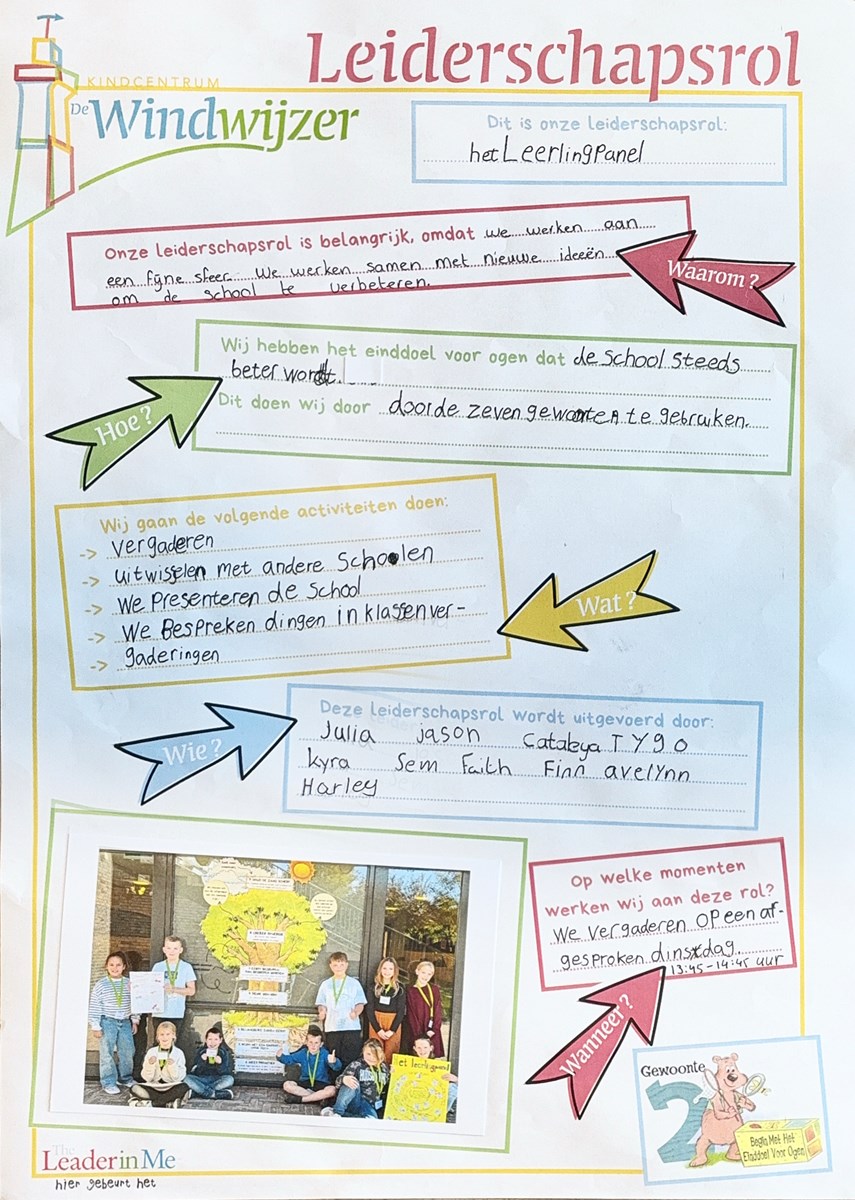 Leiderschapsrol
KINDCENTRUM
De Windwijzer
Dit is onze leiderschapsrol:
het Leerlingpanel
Onze leiderschapsrol is belangrijk, omdat we werken aan
een fijne sfeer. We werken samen met nieuwe ideeën
om de school te verbeteren.
Waarom?
Wij hebben het einddoel voor ogen dat de school steeds
beter wordt.
Dit doen wij door door de zeven gewoonten te gebruiken.
Hoe?
Wij gaan de volgende activiteiten doen:
-> vergaderen
-> uitwisselen met andere Schoolen
-> We Presenteren de School
-> We Bespreken dingen in klassenver-
-> gaderingen
Wat?
Deze leiderschapsrol wordt uitgevoerd door:
Julia Jason Cataleya TYgo
kyra Sem Faith Finn avelynn
Harley
Wie?
Op welke momenten
werken wij aan deze rol?
We vergaderen op een af-
gesproken dinsdag.
13:45-14:45 uur
Wanneer?
et leerlingpanel
Gewoonte
2
Begin Met Het
Einddoel Voor Ogen
The
Leader in Me
hier gebeurt het